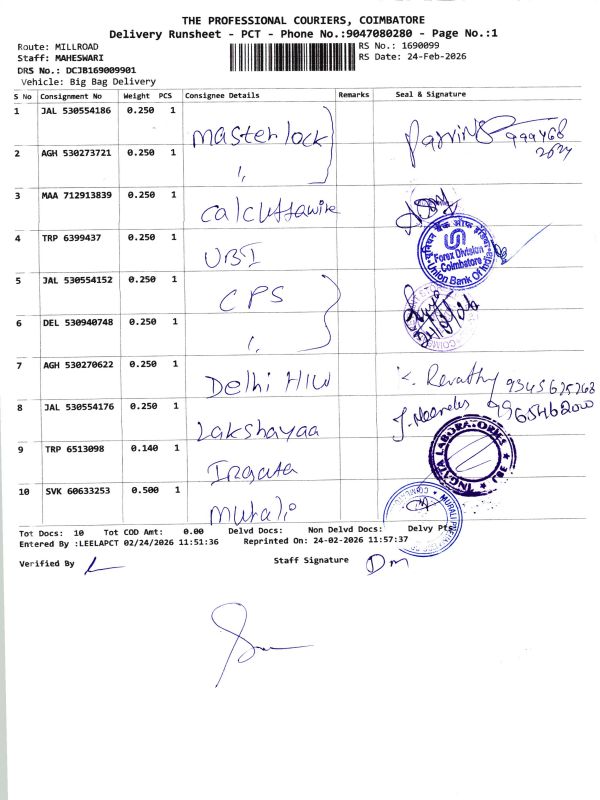 THE PROFESSIONAL COURIERS, COIMBATORE
Delivery Runsheet - PCT - Phone No.:9047080280 - Page No.:1
Route: MILLROAD
RS No.: 1690099
Staff: MAHESWARI
RS Date: 24-Feb-2026
DRS No.: DCJB169009901
Vehicle: Big Bag Delivery
S No Consignment No Weight PCS Consignee Details Remarks Seal & Signature
1 JAL 530554186 0.250 1 Master lock
2 AGH 530273721 0.250 1 "
3 MAA 712913839 0.250 1 Calcuttawire
4 TRP 6399437 0.250 1 UBI
Forex Division
Coimbatore
Union Bank Of India
5 JAL 530554152 0.250 1 CPS
6 DEL 530940748 0.250 1 "
7 AGH 530270622 0.250 1 Delhi HIW K. Revathy
8 JAL 530554176 0.250 1 Lakshayaa 9965462000
9 TRP 6513098 0.140 1 Ingata
INGATA LABORATORIES
10 SVK 60633253 0.500 1 Murali
Tot Docs: 10 Tot COD Amt: 0.00 Delvd Docs: Non Delvd Docs: Delvy Pts
Entered By :LEELAPCT 02/24/2026 11:51:36 Reprinted On: 24-02-2026 11:57:37
Verified By
Staff Signature